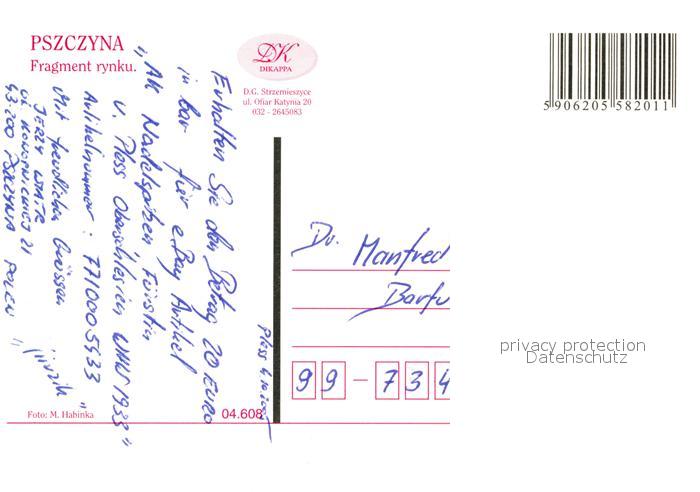 PSZCZYNA
Fragment rynku.
DK
DIKAPPA
D.G. Strzemieszyce
ul. Ofiar Katynia 20
032 - 2645083
5906205582011
Erhalten Sie den Betrag 20 EURO
in bar für e.Bay Artikel
"AK Nadelspitzen Fürstin
v. Pless Oberschlesien 1933"
Artikelnummer: 7710005433
Mit freundlichen Grüssen
JERZY
43-200 PSZCZYNA POLEN
Pless
Dr. Manfred
Barfu
99-734
Foto: M. Habinka
04.608
privacy protection
Datenschutz